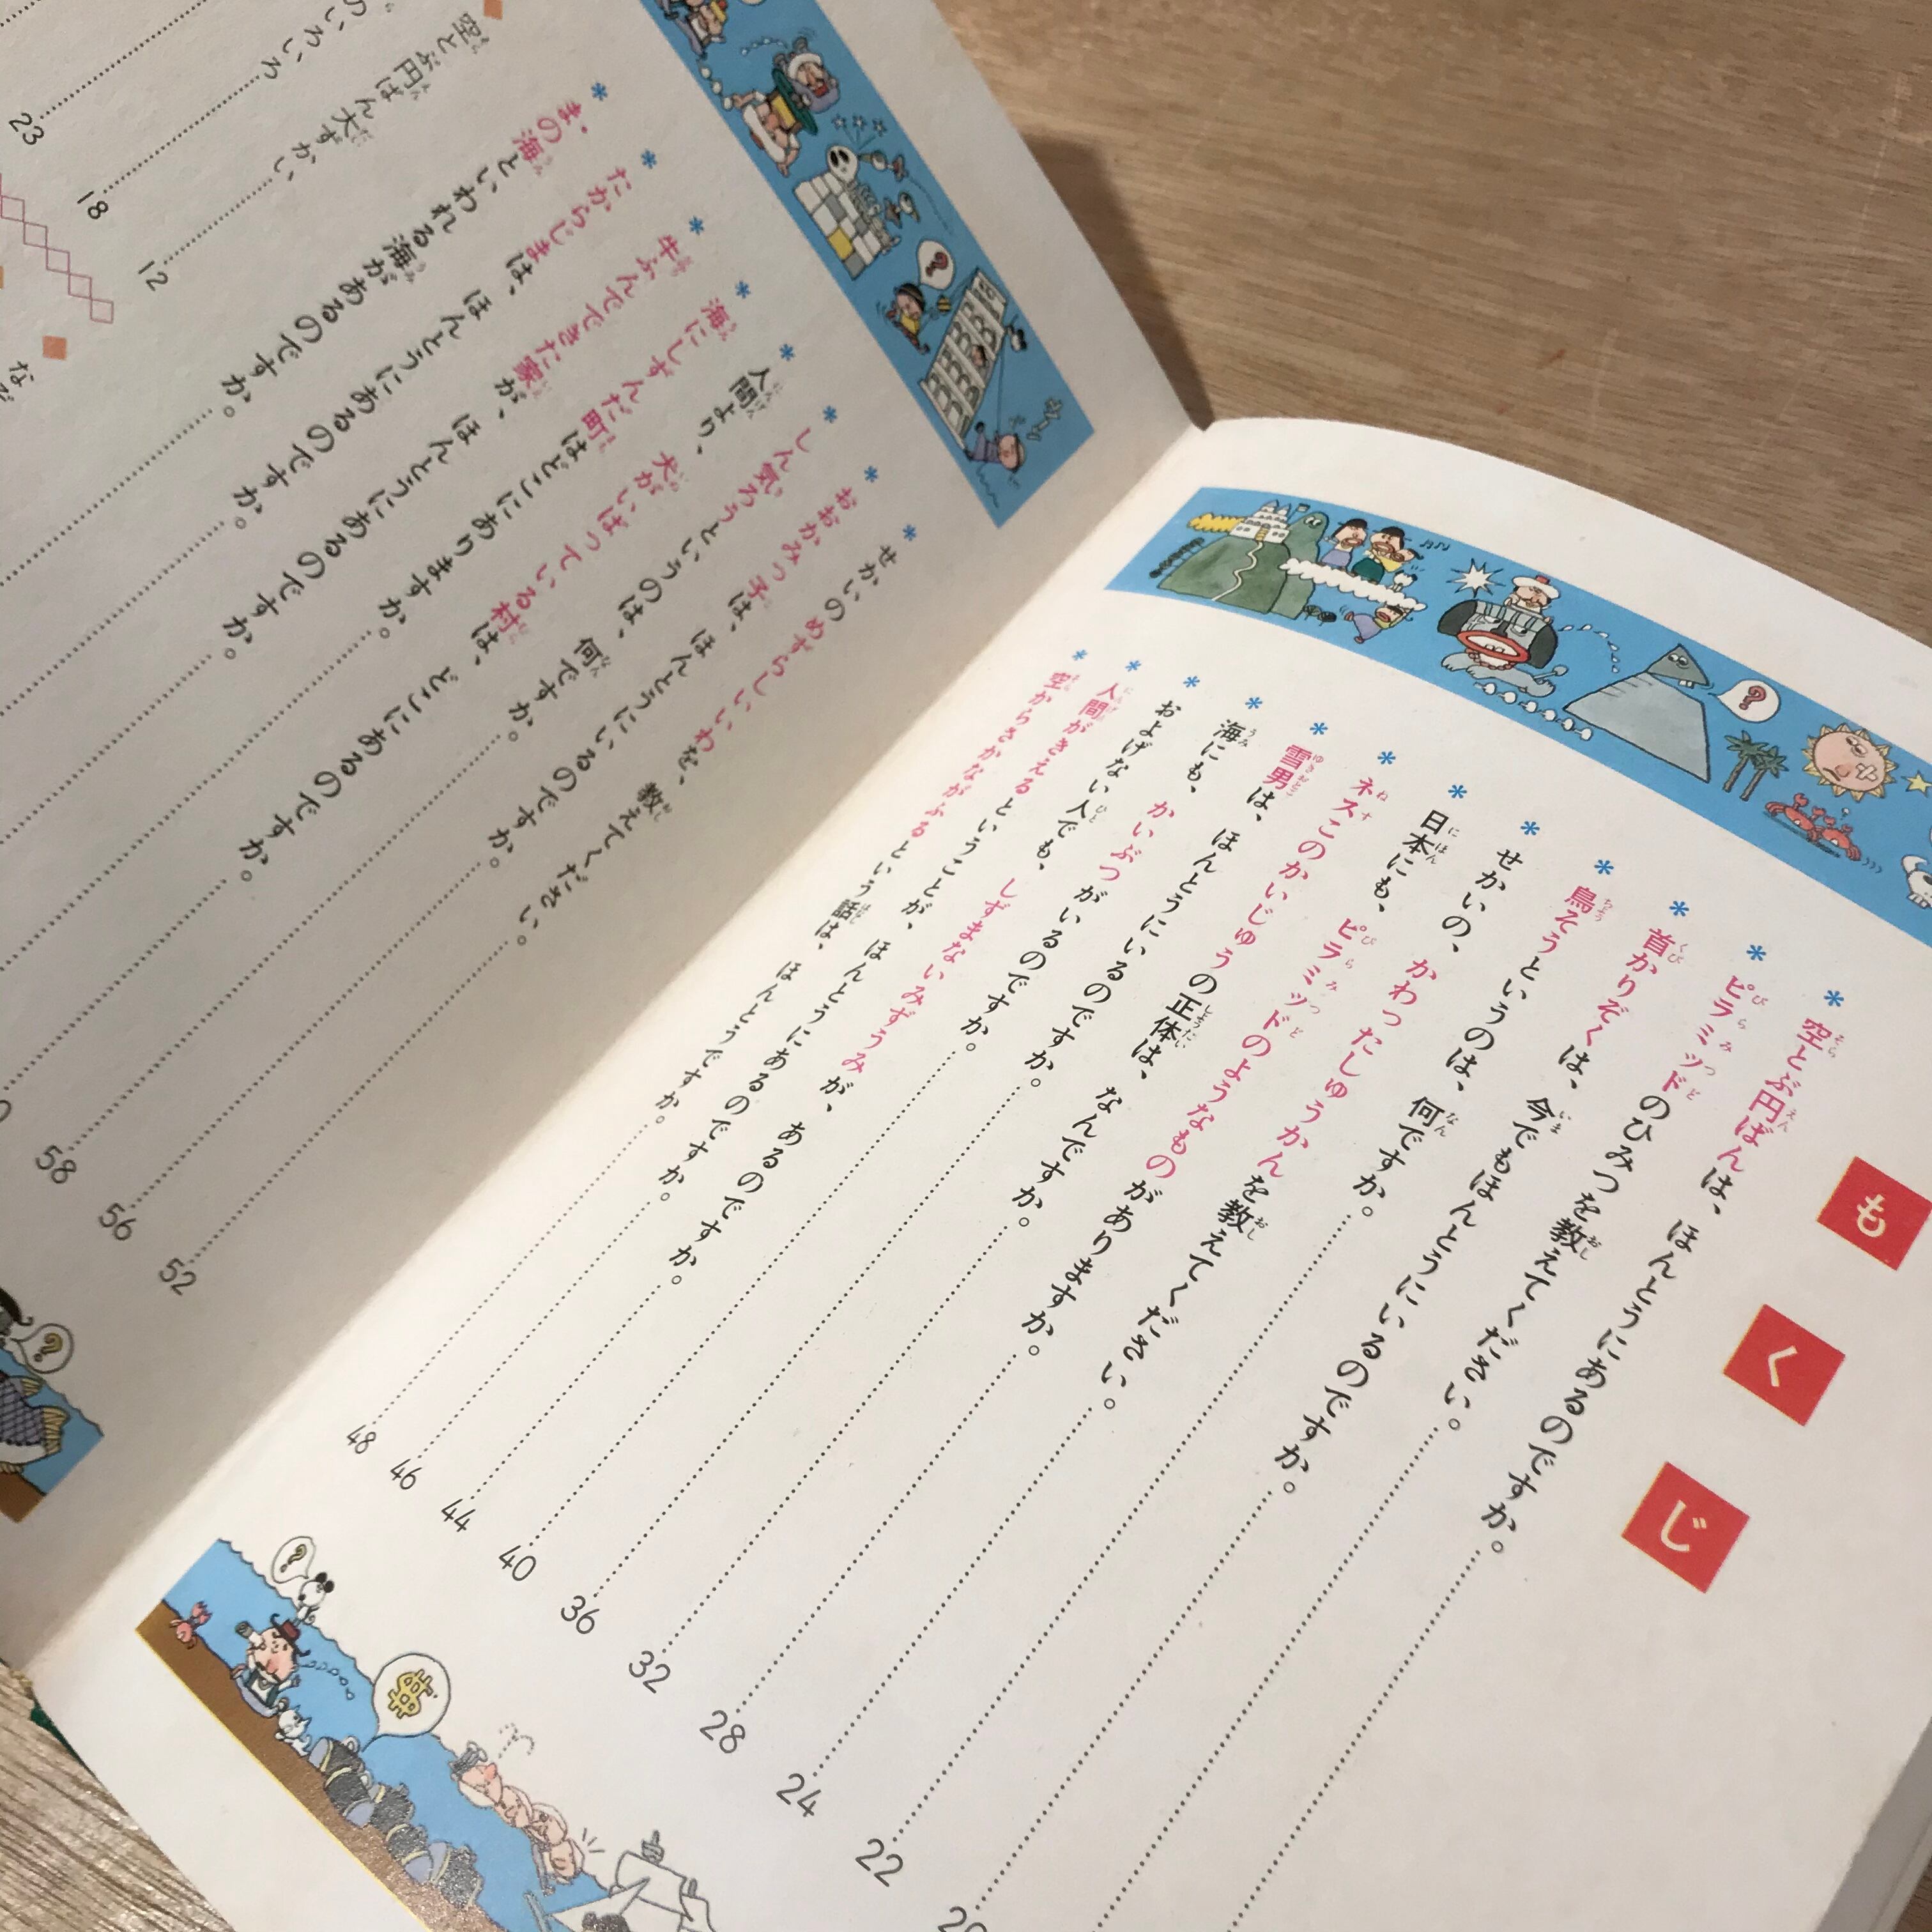 もくじ
* 空とぶ円ばんは、ほんとうにあるのですか。
* ピラミッドのひみつを教えてください。
* 首かりぞくは、今でもほんとうにいるのですか。
* 鳥そうというのは、何ですか。 22
* せかいの、かわったしゅうかんを教えてください。 24
* 日本にも、ピラミッドのようなものがありますか。 28
* ネスこのかいじゅうの正体は、なんですか。 32
* 雪男は、ほんとうにいるのですか。 36
* 海にも、かいぶつがいるのですか。 40
* およげない人でも、しずまないみずうみが、あるのですか。 44
* 人間がきえるということが、ほんとうにあるのですか。 46
* 空からさかながふるという話は、ほんとうですか。 48
* せかいのめずらしいいわを、教えてください。 52
* おおかみっ子は、ほんとうにいるのですか。 56
* しん気ろうというのは、何ですか。 58
* 人間より、犬がいばっている村は、どこにあるのですか。
* 海にしずんだ町はどこにありますか。
* 牛ふんでできた家が、ほんとうにあるのですか。
* たからじまは、ほんとうにあるのですか。
* まの海といわれる海があるのですか。
空とぶ円ばん大ずかい 12
のいろいろ 18
23